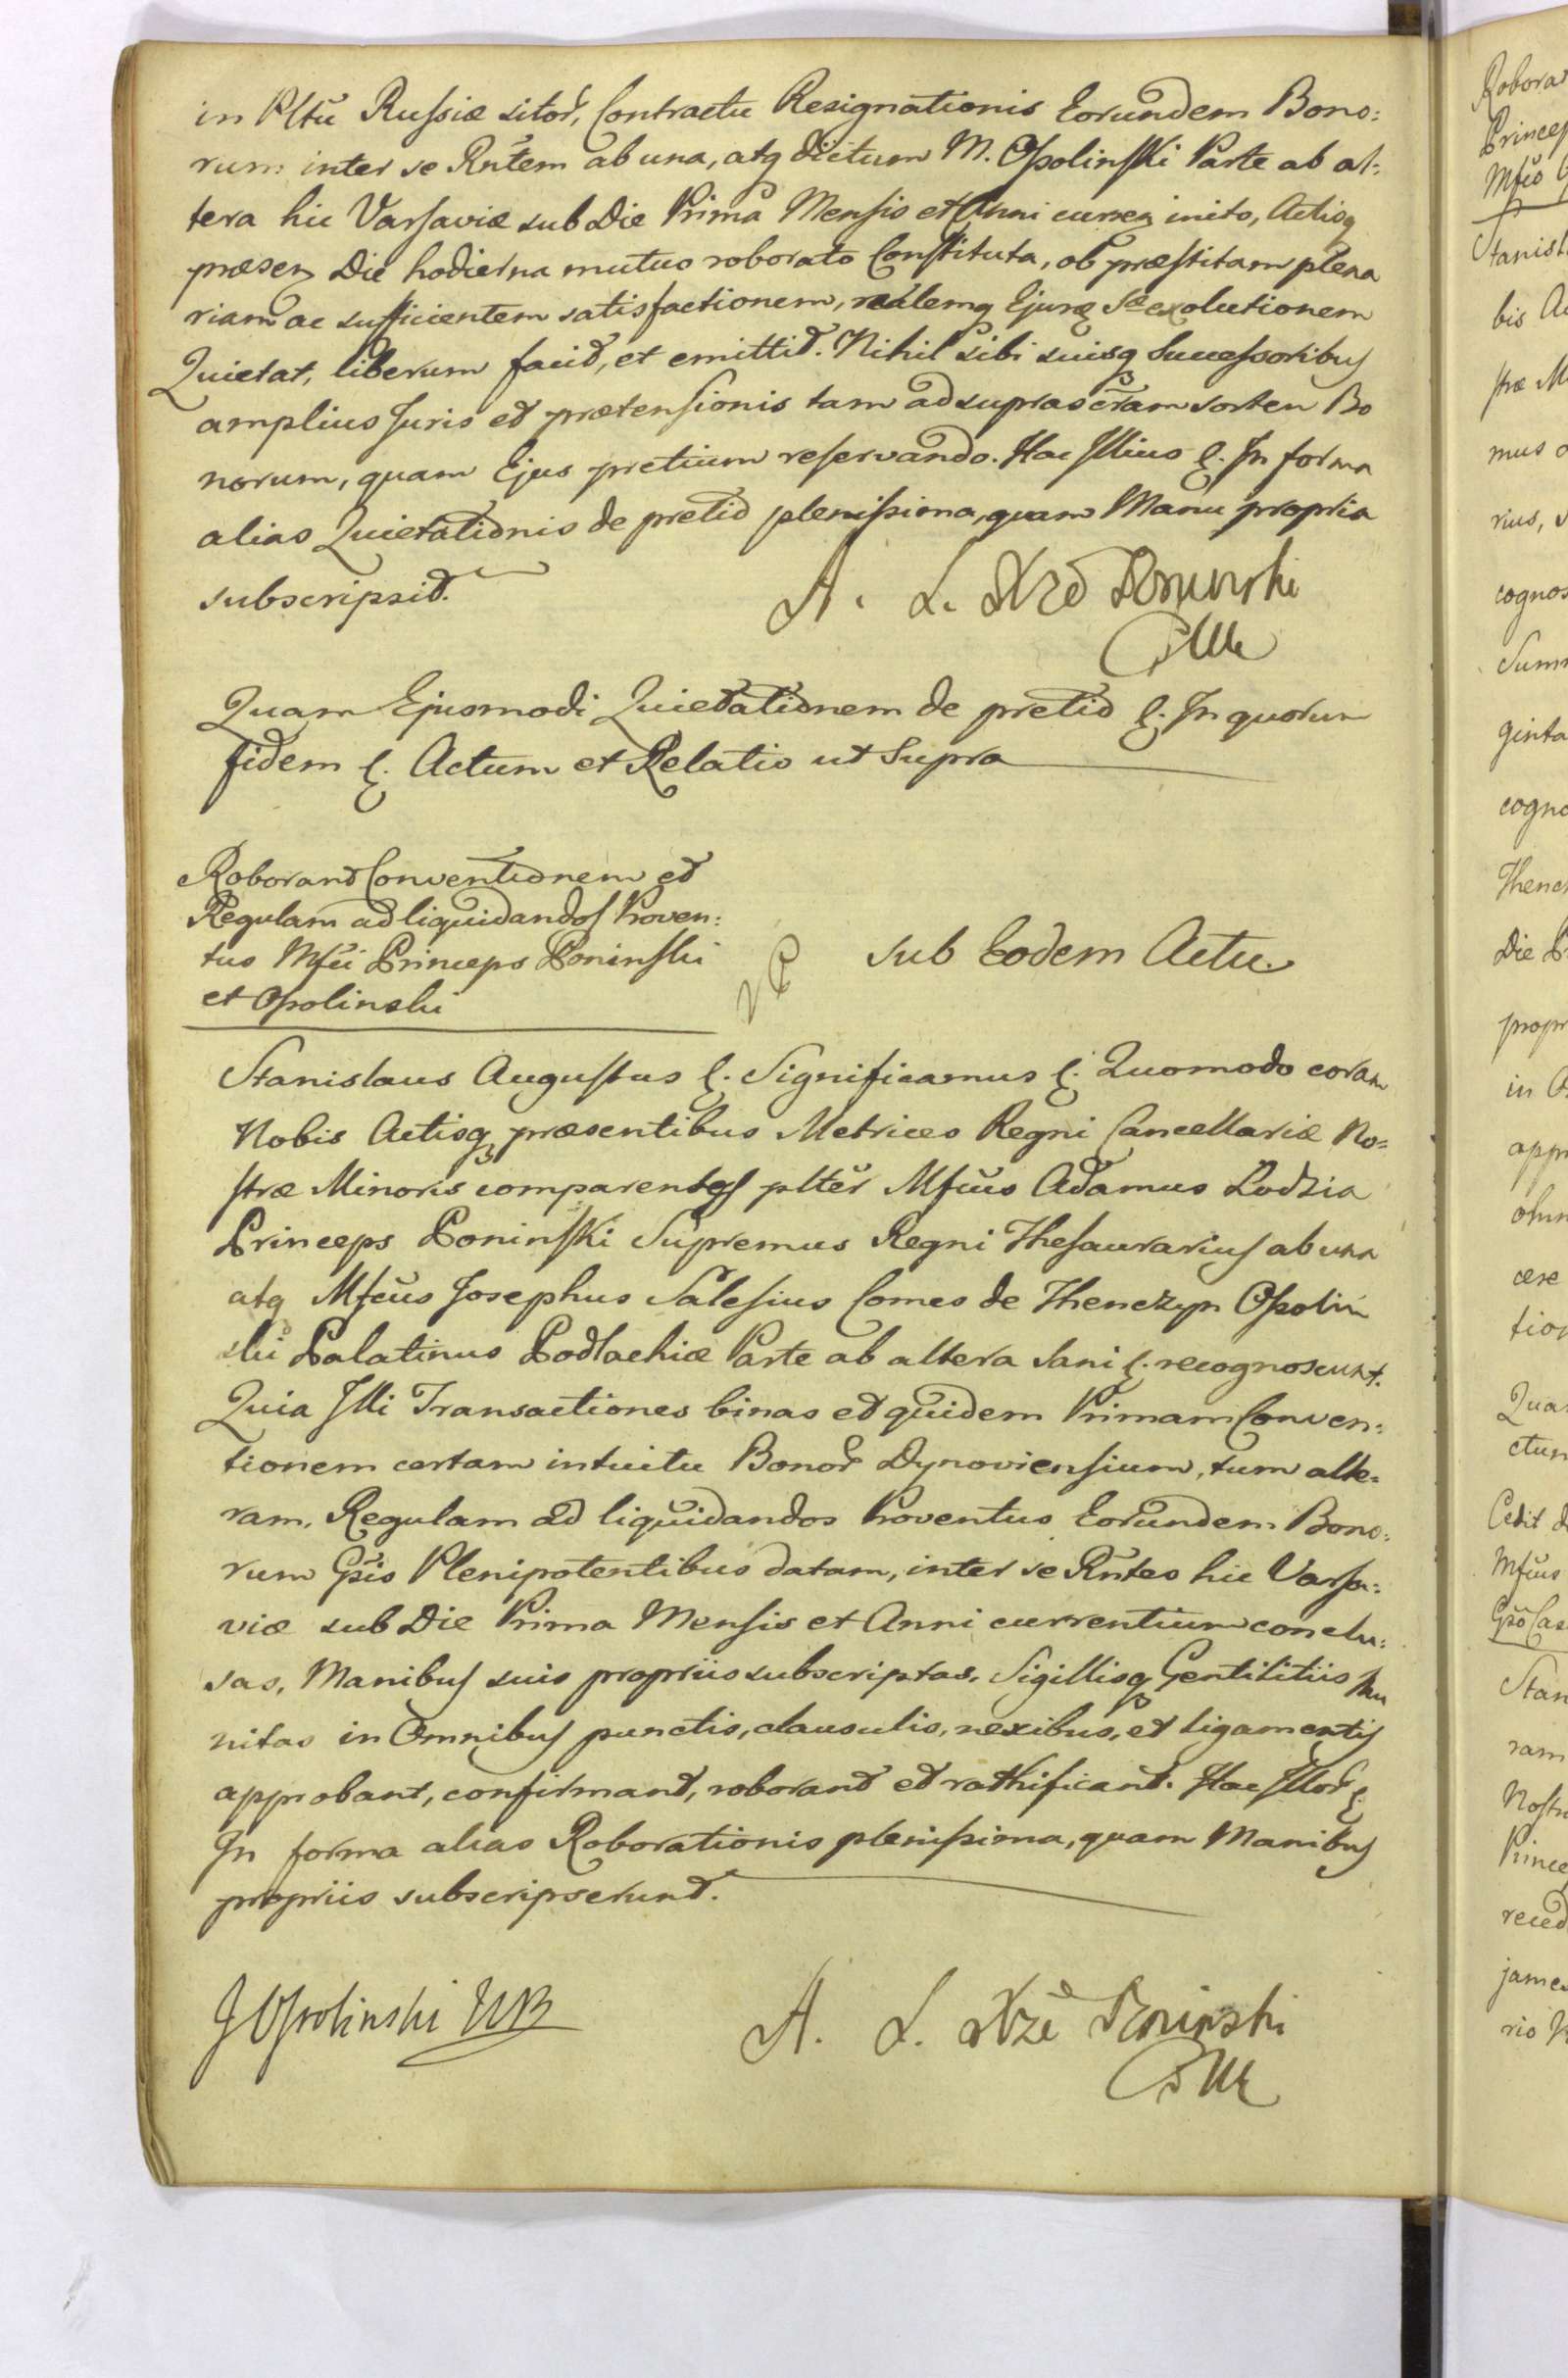 in Pltu Russiæ sitor, Contractu Resignationis Eorundem Bono:
rum inter se Rntem ab una, atq dictum M. Ossolinski Parte ab al:
tera hic Varsaviæ sub Die Prima Mensis et Anni curren inito, Actisq
præsen Die hodierna mutuo roborato Constituta, ob præstitam plena
riam ac sufficientem satisfactionem, realemq Ejusq exolutionem
Quietat, liberum facit, et emittit. Nihil sibi suisq Successoribus
amplius Juris et prætensionis tam ad suprascram sortem Bo
norum, quam Ejus pretium reservando. Hac Illius &. In forma
alias Quietationis de pretio plenissima, quam Manu propria
subscripsit.
A. Ł. Xże Poninski
PWK
Quam Ejusmodi Quietationem de pretio &. In quorum
fidem &. Actum et Relatio ut Supra
Roborant Conventionem et
Regulam ad liquidandos Proven:
tus Mfci Princeps Poninski
et Ossolinski
Sub Eodem Actu.
Stanislaus Augustus &. Significamus &. Quomodo coram
Nobis Actisq præsentibus Metrices Regni Cancellariæ No=
stræ Minoris comparentes plter Mfcus Adamus Lodzia
Princeps Poninski Supremus Regni Thesaurarius ab una
atq Mfcus Josephus Salesius Comes de Thenczyn Ossolin
ski Palatinus Podlachiæ Parte ab altera Sani &. recognoscunt.
Quia Illi Transactiones binas et quidem Primam Conven:
tionem certam intuitu Bonor Dynoviensium, tum alte=
ram, Regulam ad liquidandos Proventus Eorundem Bono:
rum Gsis Plenipotentibus datam, inter se Rntes hic Varsa:
viæ sub Die Prima Mensis et Anni currentium conclu:
sas, Manibus suis propriis subscriptas, Sigillisq Gentilitiis mu
nitas in Omnibus punctis, clausulis, nexibus, et ligamentis
approbant, confirmant, roborant et rathificant. Hac Illor &.
In forma alias Roborationis plenissima, quam Manibus
propriis subscripserunt.
J Ossolinski WP
A. Ł. Xże Poninski
PWK
Robora
Princep
Mfco
Stanisl
bis Ac
stræ M
mus
rius,
cognos
Summ
ginta
cogno
Thenc
Die P
propr
in
appr
omn
cere
tion
Qua
ctum
Cedit d
Mfcus
Gso Cas
Stan
ram
Nostr
Prince
reced
jame
rio